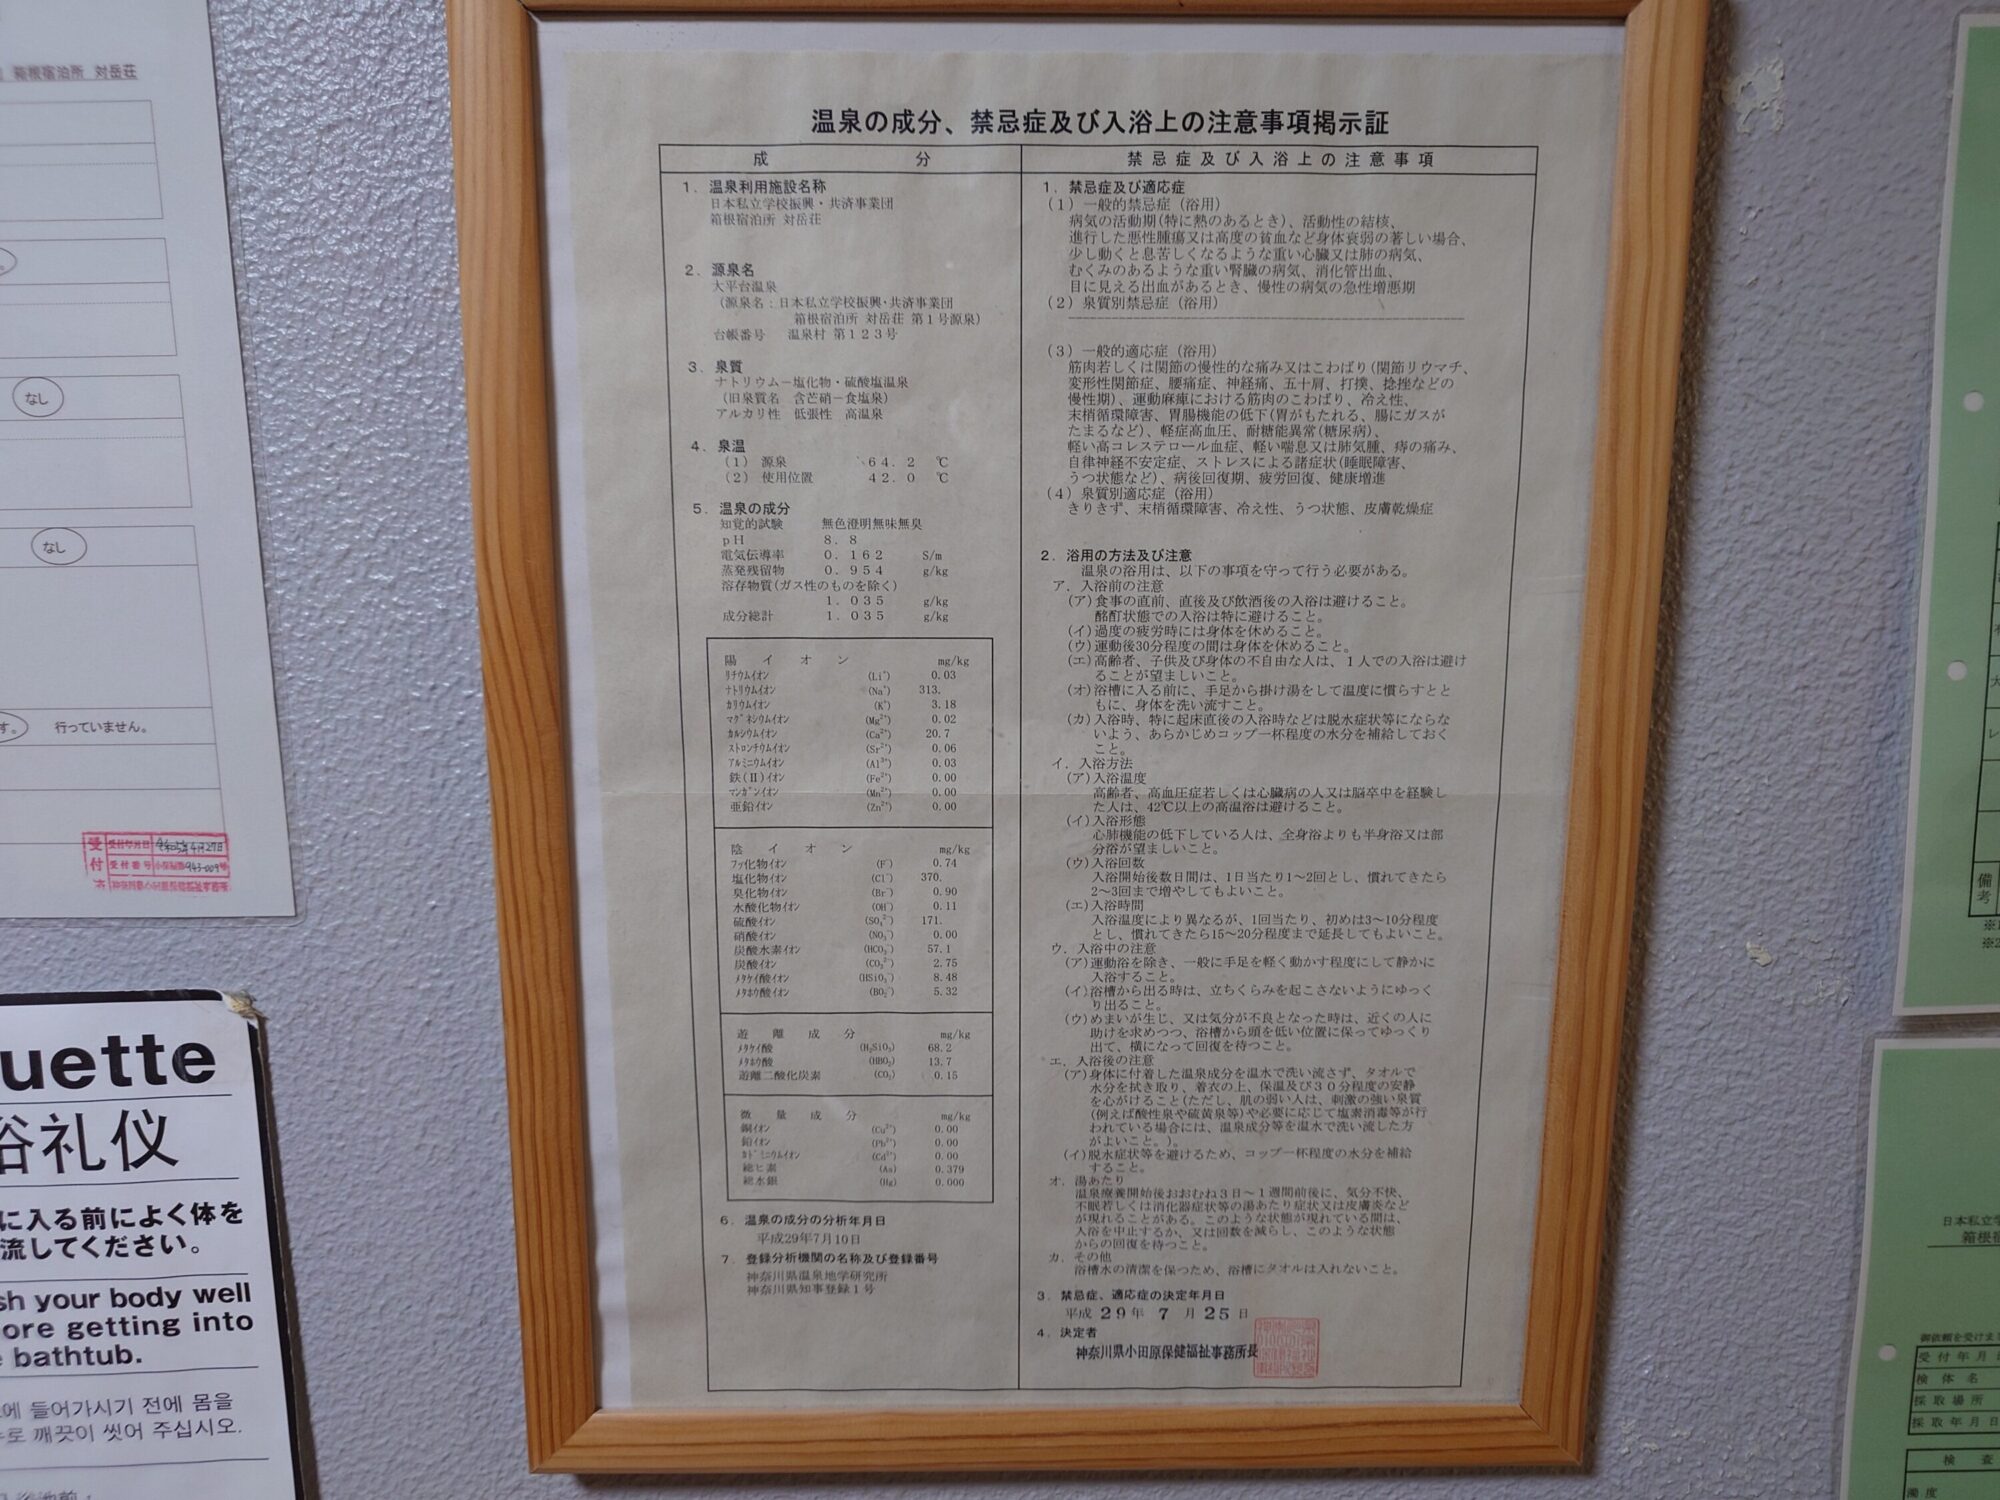 箱根宿泊所 対岳荘
なし
なし
す。
行っていません。
受付
受付年月日 令和5年4月27日
受付番号
uette
浴礼仪
に入る前によく体を
流してください。
sh your body well
ore getting into
e bathtub.
에 들어가시기 전에 몸을
로 깨끗이 씻어 주십시오.
温泉の成分、禁忌症及び入浴上の注意事項掲示証
成 分
1. 温泉利用施設名称
日本私立学校振興・共済事業団
箱根宿泊所 対岳荘
2. 源泉名
大平台温泉
(源泉名:日本私立学校振興・共済事業団
箱根宿泊所 対岳荘 第1号源泉)
台帳番号 温泉村 第123号
3. 泉質
ナトリウム－塩化物・硫酸塩温泉
(旧泉質名 含芒硝－食塩泉)
アルカリ性 低張性 高温泉
4. 泉温
(1) 源泉 64.2 ℃
(2) 使用位置 42.0 ℃
5. 温泉の成分
知覚的試験 無色澄明無味無臭
pH 8.8
電気伝導率 0.162 S/m
蒸発残留物 0.954 g/kg
溶存物質(ガス性のものを除く)
1.035 g/kg
成分総計 1.035 g/kg
陽イオン mg/kg
ﾘﾁｳﾑｲｵﾝ (Li⁺) 0.03
ﾅﾄﾘｳﾑｲｵﾝ (Na⁺) 313.
ｶﾘｳﾑｲｵﾝ (K⁺) 3.18
ﾏｸﾞﾈｼｳﾑｲｵﾝ (Mg²⁺) 0.02
ｶﾙｼｳﾑｲｵﾝ (Ca²⁺) 20.7
ｽﾄﾛﾝﾁｳﾑｲｵﾝ (Sr²⁺) 0.06
ｱﾙﾐﾆｳﾑｲｵﾝ (Al³⁺) 0.03
鉄(II)ｲｵﾝ (Fe²⁺) 0.00
ﾏﾝｶﾞﾝｲｵﾝ (Mn²⁺) 0.00
亜鉛ｲｵﾝ (Zn²⁺) 0.00
陰イオン mg/kg
ﾌｯ化物ｲｵﾝ (F⁻) 0.74
塩化物ｲｵﾝ (Cl⁻) 370.
臭化物ｲｵﾝ (Br⁻) 0.90
水酸化物ｲｵﾝ (OH⁻) 0.11
硫酸ｲｵﾝ (SO₄²⁻) 171.
硝酸ｲｵﾝ (NO₃⁻) 0.00
炭酸水素ｲｵﾝ (HCO₃⁻) 57.1
炭酸ｲｵﾝ (CO₃²⁻) 2.75
ﾒﾀｹｲ酸ｲｵﾝ (HSiO₃⁻) 8.48
ﾒﾀﾎｳ酸ｲｵﾝ (BO₂⁻) 5.32
遊離成分 mg/kg
ﾒﾀｹｲ酸 (H₂SiO₃) 68.2
ﾒﾀﾎｳ酸 (HBO₂) 13.7
遊離二酸化炭素 (CO₂) 0.15
微量成分 mg/kg
銅ｲｵﾝ (Cu²⁺) 0.00
鉛ｲｵﾝ (Pb²⁺) 0.00
ｶﾄﾞﾐｳﾑｲｵﾝ (Cd²⁺) 0.00
総ヒ素 (As) 0.379
総水銀 (Hg) 0.000
6. 温泉の成分の分析年月日
平成29年7月10日
7. 登録分析機関の名称及び登録番号
神奈川県温泉地学研究所
神奈川県知事登録1号
禁忌症及び入浴上の注意事項
1. 禁忌症及び適応症
(1) 一般的禁忌症 (浴用)
病気の活動期(特に熱のあるとき)、活動性の結核、
進行した悪性腫瘍又は高度の貧血など身体衰弱の著しい場合、
少し動くと息苦しくなるような重い心臓又は肺の病気、
むくみのあるような重い腎臓の病気、消化管出血、
目に見える出血があるとき、慢性の病気の急性増悪期
(2) 泉質別禁忌症 (浴用)
(3) 一般的適応症 (浴用)
筋肉若しくは関節の慢性的な痛み又はこわばり(関節リウマチ、
変形性関節症、腰痛症、神経痛、五十肩、打撲、捻挫などの
慢性期)、運動麻痺における筋肉のこわばり、冷え性、
末梢循環障害、胃腸機能の低下(胃がもたれる、腸にガスが
たまるなど)、軽症高血圧、耐糖能異常(糖尿病)、
軽い高コレステロール血症、軽い喘息又は肺気腫、痔の痛み、
自律神経不安定症、ストレスによる諸症状(睡眠障害、
うつ状態など)、病後回復期、疲労回復、健康増進
(4) 泉質別適応症 (浴用)
きりきず、末梢循環障害、冷え性、うつ状態、皮膚乾燥症
2. 浴用の方法及び注意
温泉の浴用は、以下の事項を守って行う必要がある。
ア. 入浴前の注意
(ア)食事の直前、直後及び飲酒後の入浴は避けること。
酩酊状態での入浴は特に避けること。
(イ)過度の疲労時には身体を休めること。
(ウ)運動後30分程度の間は身体を休めること。
(エ)高齢者、子供及び身体の不自由な人は、1人での入浴は避け
ることが望ましいこと。
(オ)浴槽に入る前に、手足から掛け湯をして温度に慣らすとと
もに、身体を洗い流すこと。
(カ)入浴時、特に起床直後の入浴時などは脱水症状等にならな
いよう、あらかじめコップ一杯程度の水分を補給しておく
こと。
イ. 入浴方法
(ア)入浴温度
高齢者、高血圧症若しくは心臓病の人又は脳卒中を経験し
た人は、42℃以上の高温浴は避けること。
(イ)入浴形態
心肺機能の低下している人は、全身浴よりも半身浴又は部
分浴が望ましいこと。
(ウ)入浴回数
入浴開始後数日間は、1日当たり1～2回とし、慣れてきたら
2～3回まで増やしてもよいこと。
(エ)入浴時間
入浴温度により異なるが、1回当たり、初めは3～10分程度
とし、慣れてきたら15～20分程度まで延長してもよいこと。
ウ. 入浴中の注意
(ア)運動浴を除き、一般に手足を軽く動かす程度にして静かに
入浴すること。
(イ)浴槽から出る時は、立ちくらみを起こさないようにゆっく
り出ること。
(ウ)めまいが生じ、又は気分が不良となった時は、近くの人に
助けを求めつつ、浴槽から頭を低い位置に保ってゆっくり
出て、横になって回復を待つこと。
エ. 入浴後の注意
(ア)身体に付着した温泉成分を温水で洗い流さず、タオルで
水分を拭き取り、着衣の上、保温及び30分程度の安静
を心がけること(ただし、肌の弱い人は、刺激の強い泉質
(例えば酸性泉や硫黄泉等)や必要に応じて塩素消毒等が行
われている場合には、温泉成分等を温水で洗い流した方
がよいこと。)。
(イ)脱水症状等を避けるため、コップ一杯程度の水分を補給
すること。
オ. 湯あたり
温泉療養開始後おおむね3日～1週間前後に、気分不快、
不眠若しくは消化器症状等の湯あたり症状又は皮膚炎など
が現れることがある。このような状態が現れている間は、
入浴を中止するか、又は回数を減らし、このような状態
からの回復を待つこと。
カ. その他
浴槽水の清潔を保つため、浴槽にタオルは入れないこと。
3. 禁忌症、適応症の決定年月日
平成 29年 7月25日
4. 決定者
神奈川県小田原保健福祉事務所長
備考
日本私立学
箱根宿
御依頼を受けま
受付年月
検体名
採取場所
採取年月日
検査
濁度